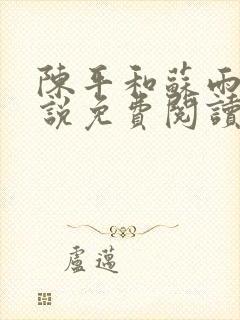 陳平和蘇雨
說免費閱讀
盧邁